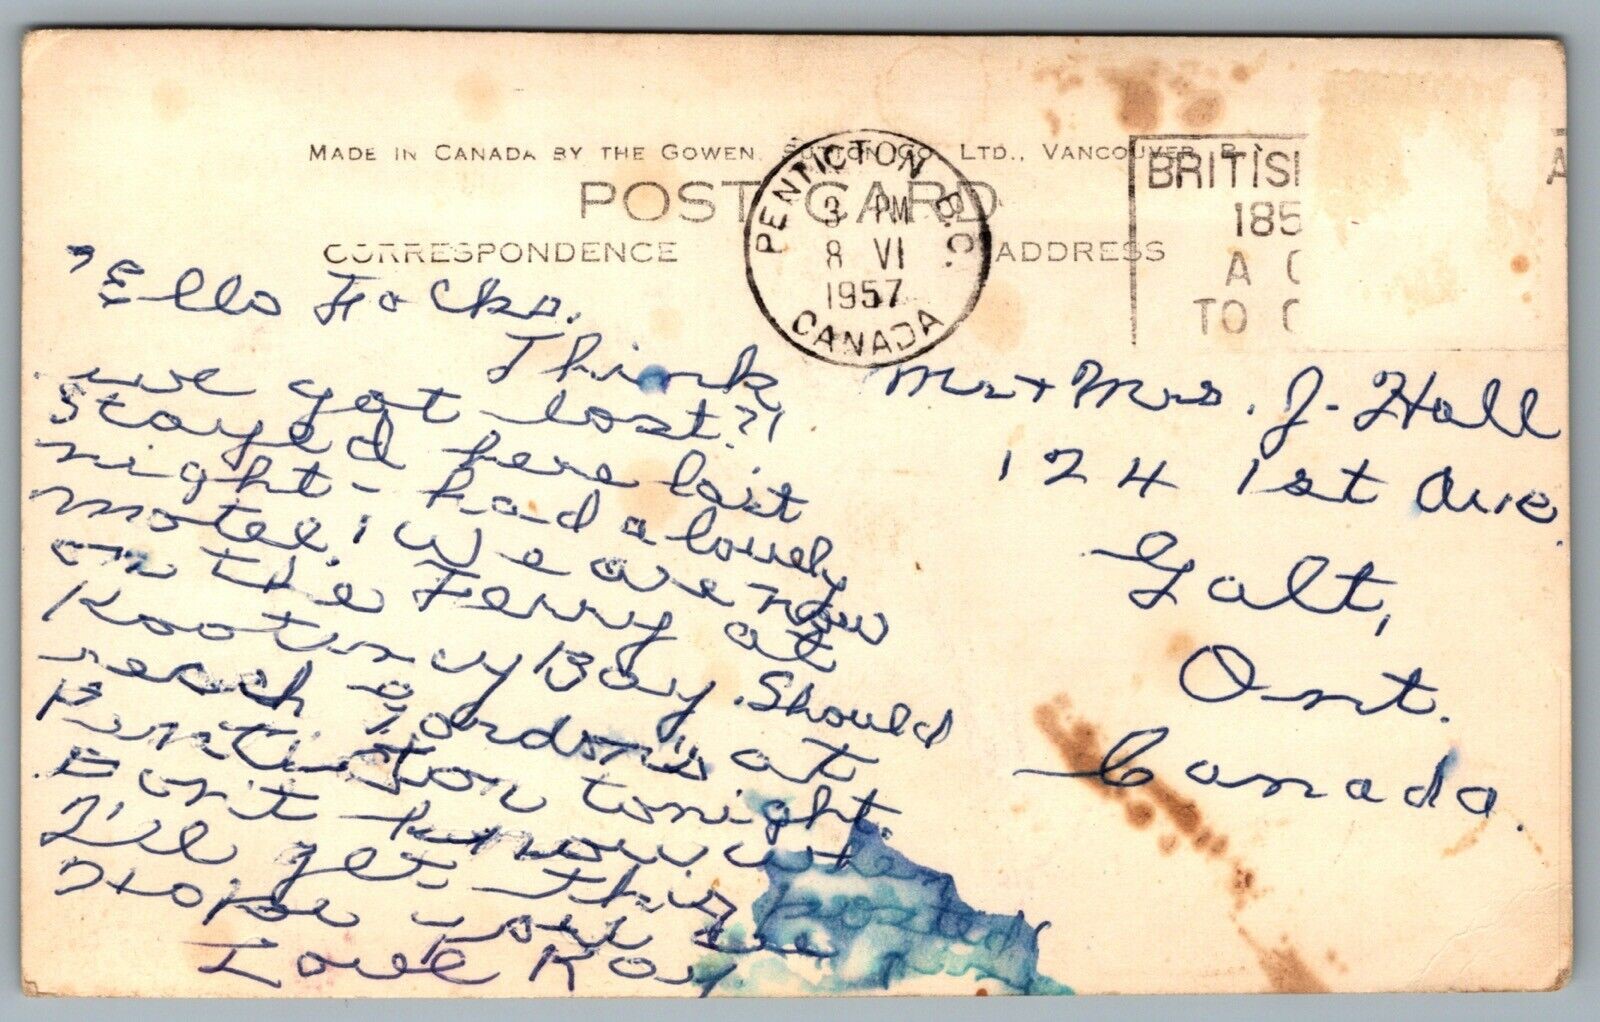 MADE IN CANADA BY THE GOWEN, SUTTON CO. LTD., VANCOUVER, B.
POST CARD
CORRESPONDENCE
ADDRESS
PENTICTON B.C.
3 PM
8 VI
1957
CANADA
BRITISH
185
A C
TO C
A
'Ello Folks.
Think
we got lost?!
Stayed here last
night - had a lovely
motel! We are now
on the Ferry at
Kootney Bay. Should
reach Gordon's at
Penticton tonight.
Don't know when
I'll get this posted
Hope you are
Love Kay
Mr + Mrs. J. Hall
124 1st Ave
Galt,
Ont.
Canada.